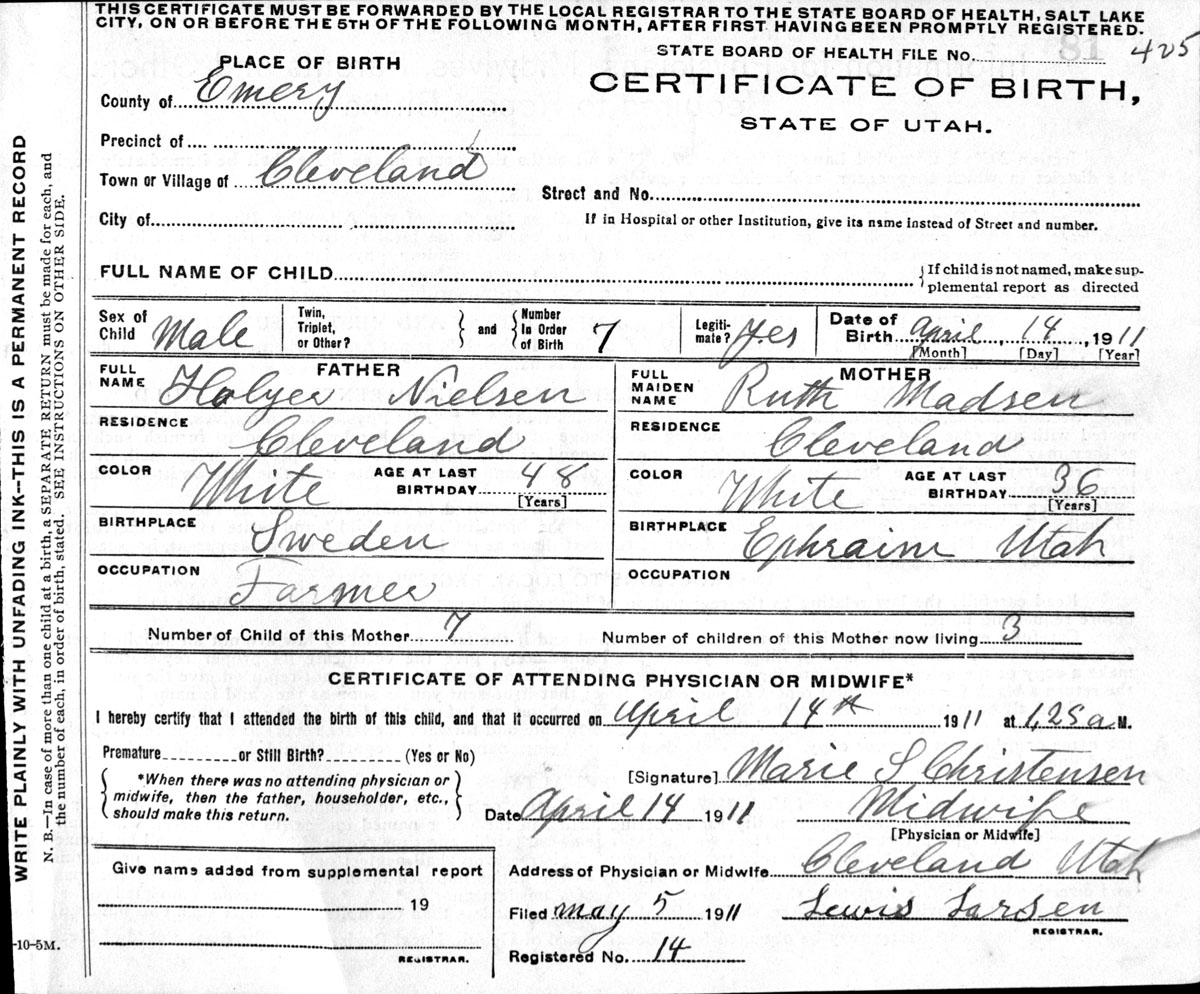 THIS CERTIFICATE MUST BE FORWARDED BY THE LOCAL REGISTRAR TO THE STATE BOARD OF HEALTH, SALT LAKE
CITY, ON OR BEFORE THE 5TH OF THE FOLLOWING MONTH, AFTER FIRST HAVING BEEN PROMPTLY REGISTERED.
STATE BOARD OF HEALTH FILE No. 81 425
PLACE OF BIRTH
CERTIFICATE OF BIRTH,
County of Emery
STATE OF UTAH.
Precinct of
Town or Village of Cleveland
Street and No.
City of
If in Hospital or other Institution, give its name instead of Street and number.
FULL NAME OF CHILD
If child is not named, make sup-
plemental report as directed
Sex of Child Male
Twin, Triplet, or Other? and Number In Order of Birth 7
Legiti-mate? Yes
Date of Birth April, 14, 1911
[Month] [Day] [Year]
FATHER
FULL NAME Holger Nielsen
MOTHER
FULL MAIDEN NAME Ruth Madsen
RESIDENCE Cleveland
RESIDENCE Cleveland
COLOR White AGE AT LAST BIRTHDAY 48 [Years]
COLOR White AGE AT LAST BIRTHDAY 36 [Years]
BIRTHPLACE Sweden
BIRTHPLACE Ephraim Utah
OCCUPATION Farmer
OCCUPATION
Number of Child of this Mother 7
Number of children of this Mother now living 3
CERTIFICATE OF ATTENDING PHYSICIAN OR MIDWIFE*
I hereby certify that I attended the birth of this child, and that it occurred on April 14th 1911 at 1,25 a M.
Premature or Still Birth? (Yes or No)
*When there was no attending physician or
midwife, then the father, householder, etc.,
should make this return.
[Signature] Marie S Christensen
Date April 14 1911 Midwife
[Physician or Midwife]
Give name added from supplemental report
19
REGISTRAR.
Address of Physician or Midwife Cleveland Utah
Filed May 5 1911 Lewis Larsen
REGISTRAR.
Registered No. 14
WRITE PLAINLY WITH UNFADING INK—THIS IS A PERMANENT RECORD
N. B.—In case of more than one child at a birth, a SEPARATE RETURN must be made for each, and
the number of each, in order of birth, stated. SEE INSTRUCTIONS ON OTHER SIDE.
-10-5M.